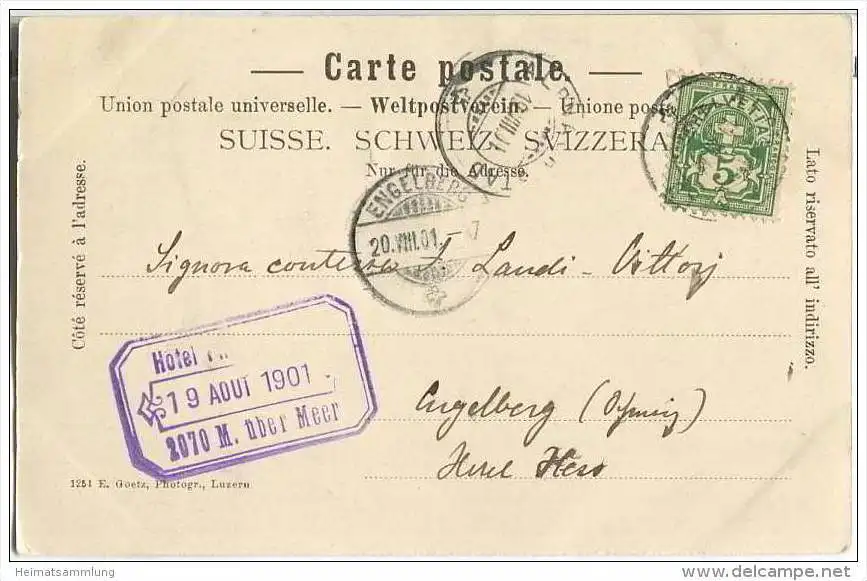 Carte postale.
Union postale universelle. — Weltpostverein. — Unione posta
SUISSE. SCHWEIZ. SVIZZERA.
Nur für die Adresse.
HELVETIA
5
ENGELBERG
20.VIII.01. - 7
Côté réservé à l'adresse.
Lato riservato all' indirizzo.
Signora contessa Landi - Vittorj
Hotel
19 AOUT 1901
2070 M. über Meer
Engelberg
Hotel Hess
1251 E. Goetz, Photogr., Luzern
Heimatsammlung
www.delcampe.net